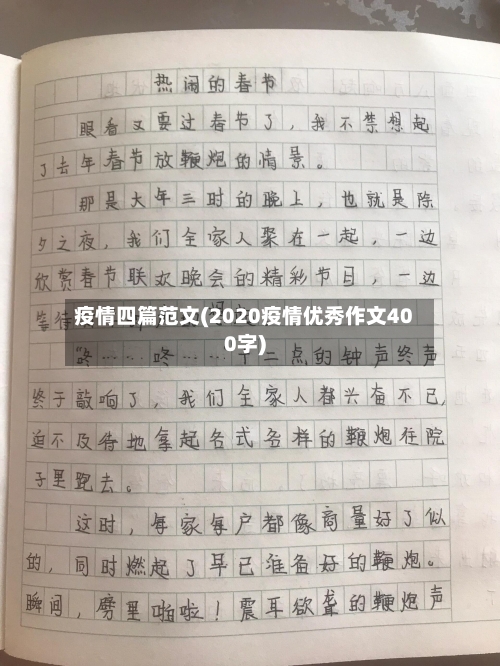 热闹的春节
眼看又要过春节了，我不禁想起
了去年春节放鞭炮的情景。
那是大年三时的晚上，也就是除
夕之夜，我们全家人聚在一起，一边
欣赏春节联欢晚会的精彩节目，一边
等待
疫情四篇范文(2020疫情优秀作文40
0字)
“咚……咚……十二点的钟声终声
终于敲响了，我们全家人都兴奋不已，
迫不及待地拿起各式各样的鞭炮往院
子里跑去。
这时，每家每户都像商量好了似
的，同时燃起了早已准备好的鞭炮。
瞬间，劈里啪啦！震耳欲聋的鞭炮声